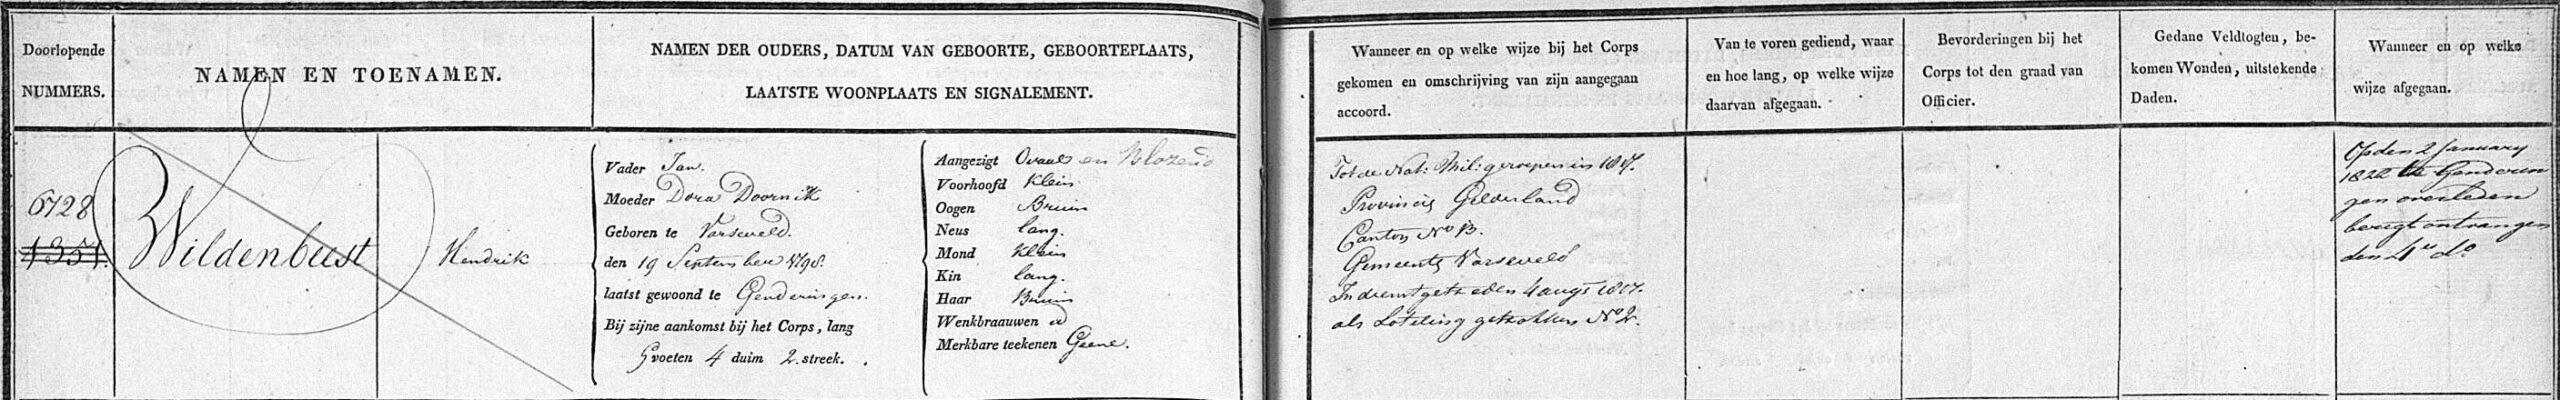 Doorlopende
NUMMERS.
NAMEN EN TOENAMEN.
NAMEN DER OUDERS, DATUM VAN GEBOORTE, GEBOORTEPLAATS,
LAATSTE WOONPLAATS EN SIGNALEMENT.
Wanneer en op welke wijze bij het Corps
gekomen en omschrijving van zijn aangegaan
accoord.
Van te voren gediend, waar
en hoe lang, op welke wijze
daarvan afgegaan.
Bevorderingen bij het
Corps tot den graad van
Officier.
Gedane Veldtogten, be-
komen Wonden, uitstekende
Daden.
Wanneer en op welke
wijze afgegaan.
6728
1351.
Wildenbeest
Hendrik
Vader Jan.
Moeder Dora Doornik
Geboren te Varseveld.
den 19 September 1798.
laatst gewoond te Genderingen.
Bij zijne aankomst bij het Corps, lang
5 voeten 4 duim 2. streek.
Aangezigt Ovaal en Blozend
Voorhoofd Klein
Oogen Bruin
Neus lang.
Mond Klein
Kin lang.
Haar Bruin
Wenkbraauwen d
Merkbare teekenen Geene.
Tot de Nat: Mil: geroepen in 1817.
Provincie Gelderland
Canton No 13.
Gemeente Varseveld
In dienst getreden 4 augs 1817.
als Loteling getrokken No 2.
Op den 2 January
1822 te Genderin
gen overleden
berigt ontvangen
den 4er do